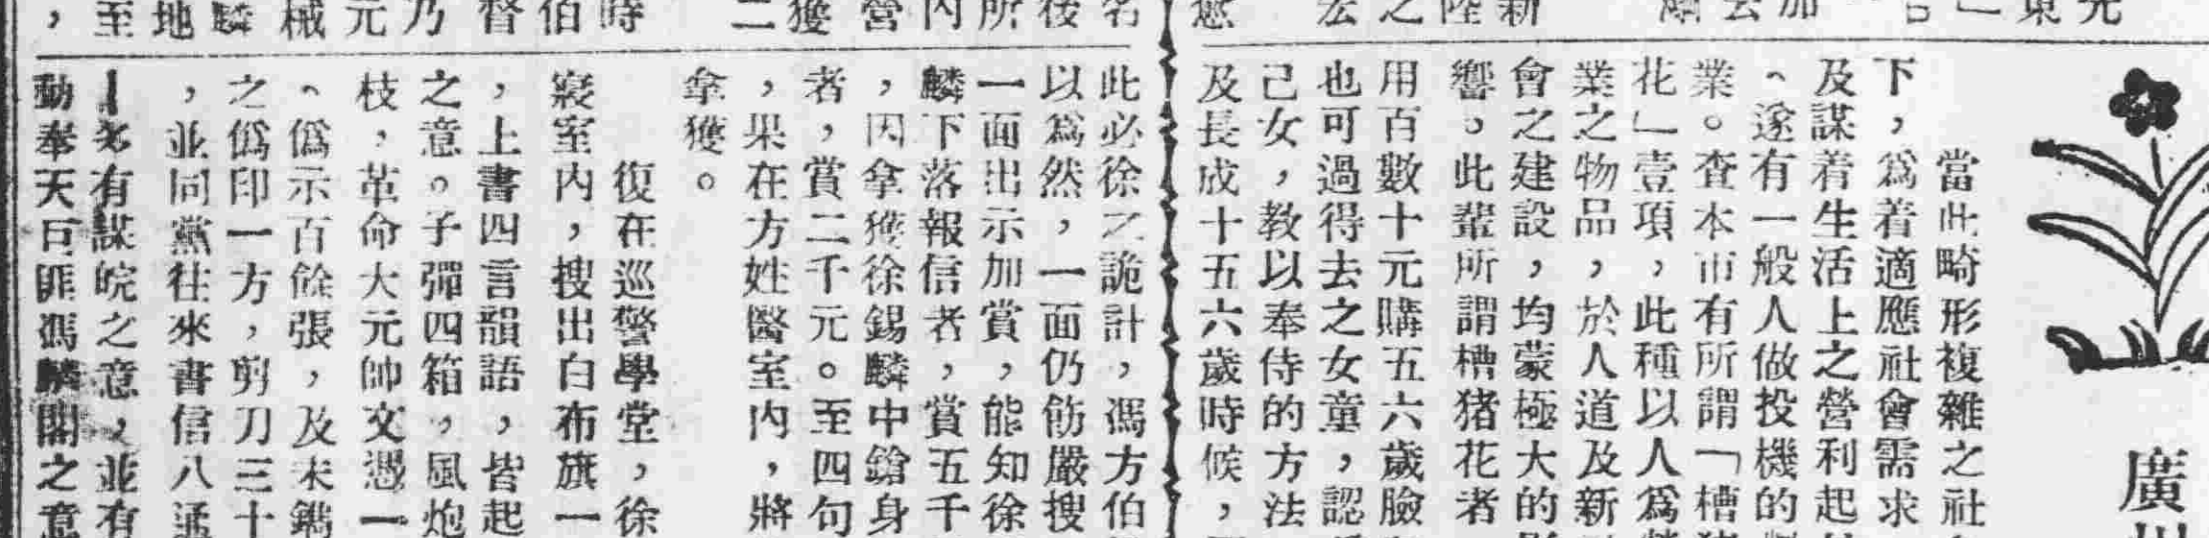 廣
當此畸形複雜之社
下，爲着適應社會需求
及謀着生活上之營利起
、遂有一般人做投機的
業。查本市有所謂「槽
花」壹項，此種以人爲
業之物品，於人道及新
會之建設，均蒙極大的
響。此輩所謂槽猪花者
用百數十元購五六歲臉
也可過得去之女童，認
己女，教以奉侍的方法
及長成十五六歲時候，
此必徐之詭計，馮方伯
以爲然，一面仍飭嚴搜
一面出示加賞，能知徐
麟下落報信者，賞五千
，因拿獲徐錫麟中鎗身
者，賞二千元。至四句
，果在方姓醫室內，將
拿獲。
復在巡警學堂，徐
寢室內，搜出白布旗一
，上書四言韻語，皆起
之意。子彈四箱，風炮
枝，革命大元帥文憑一
、僞示百餘張，及未鐫
之僞印一方，剪刀三十
，並同黨往來書信八通
有謀皖之意，並有
動奉天巨匪馮麟閣之意